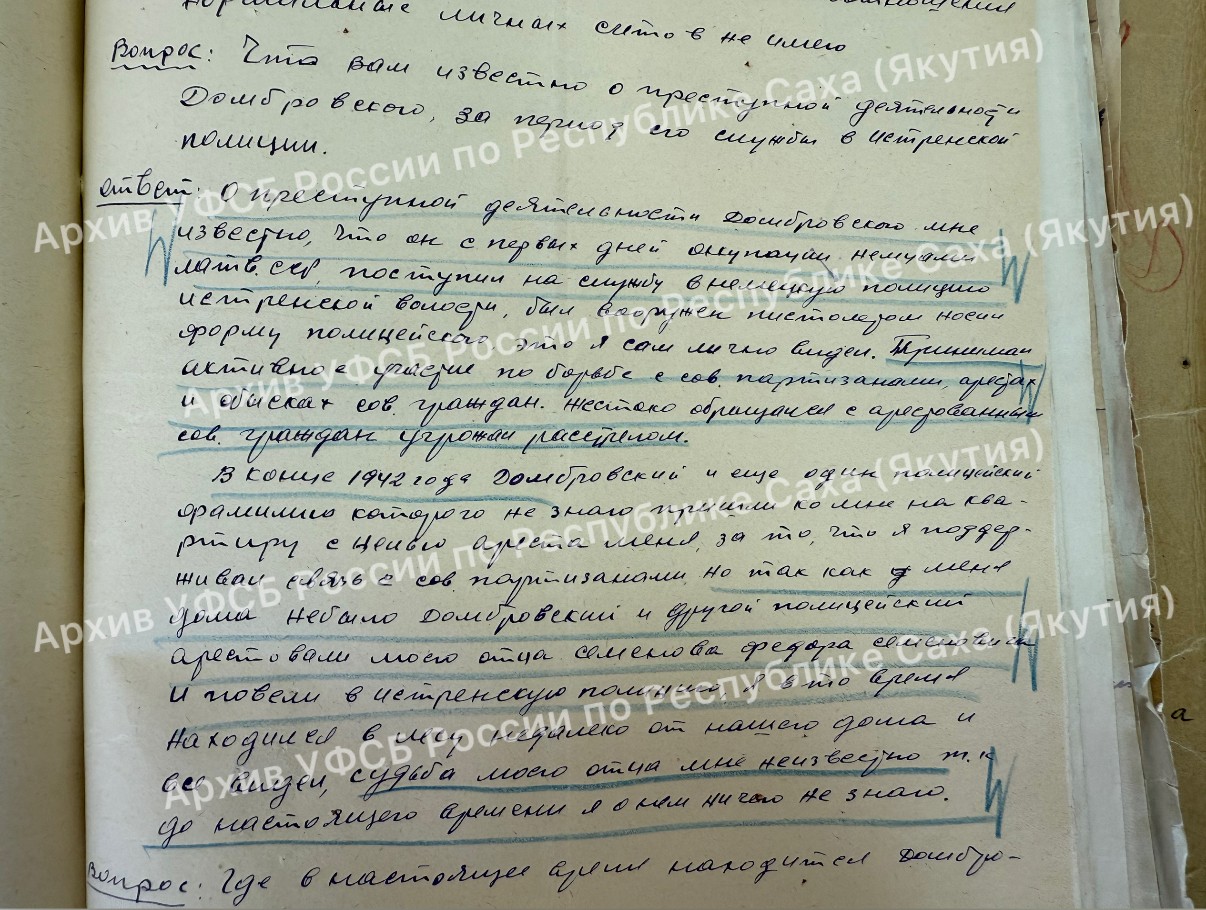 нормальные личных счетов не имею
Вопрос: Что вам известно о преступной деятельности
Домбровского, за период его службы в истренской
полиции.
ответ: О преступной деятельности Домбровского мне
известно, что он с первых дней оккупации немцами
латв. сср, поступил на службу в немецкую полицию
истренской волости, был вооружен пистолетом носил
форму полицейского это я сам лично видел. Принимал
активное участие по борьбе с сов. партизанами, арестах
и обысках сов. граждан. жестоко обращался с арестованными
сов. граждан угрожал расстрелом.
В конце 1942 года Домбровский и еще один полицейский
фамилию которого не знаю пришли ко мне на ква-
ртиру с целью ареста меня, за то, что я поддер-
живал связь с сов. партизанами но так как у меня
дома небыло Домбровский и другой полицейский
арестовали моего отца семенова федора семеновича
и повели в истренскую полицию, я в то время
находился в лесу недалеко от нашего дома и
все видел, судьба моего отца мне неизвестно т.к
до настоящего времени я о нем ничего не знаю.
Вопрос: Где в настоящее время находится Домбро-
Архив УФСБ России по Республике Саха (Якутия)
Архив УФСБ России по Республике Саха (Якутия)
Архив УФСБ России по Республике Саха (Якутия)
Архив УФСБ России по Республике Саха (Якутия)